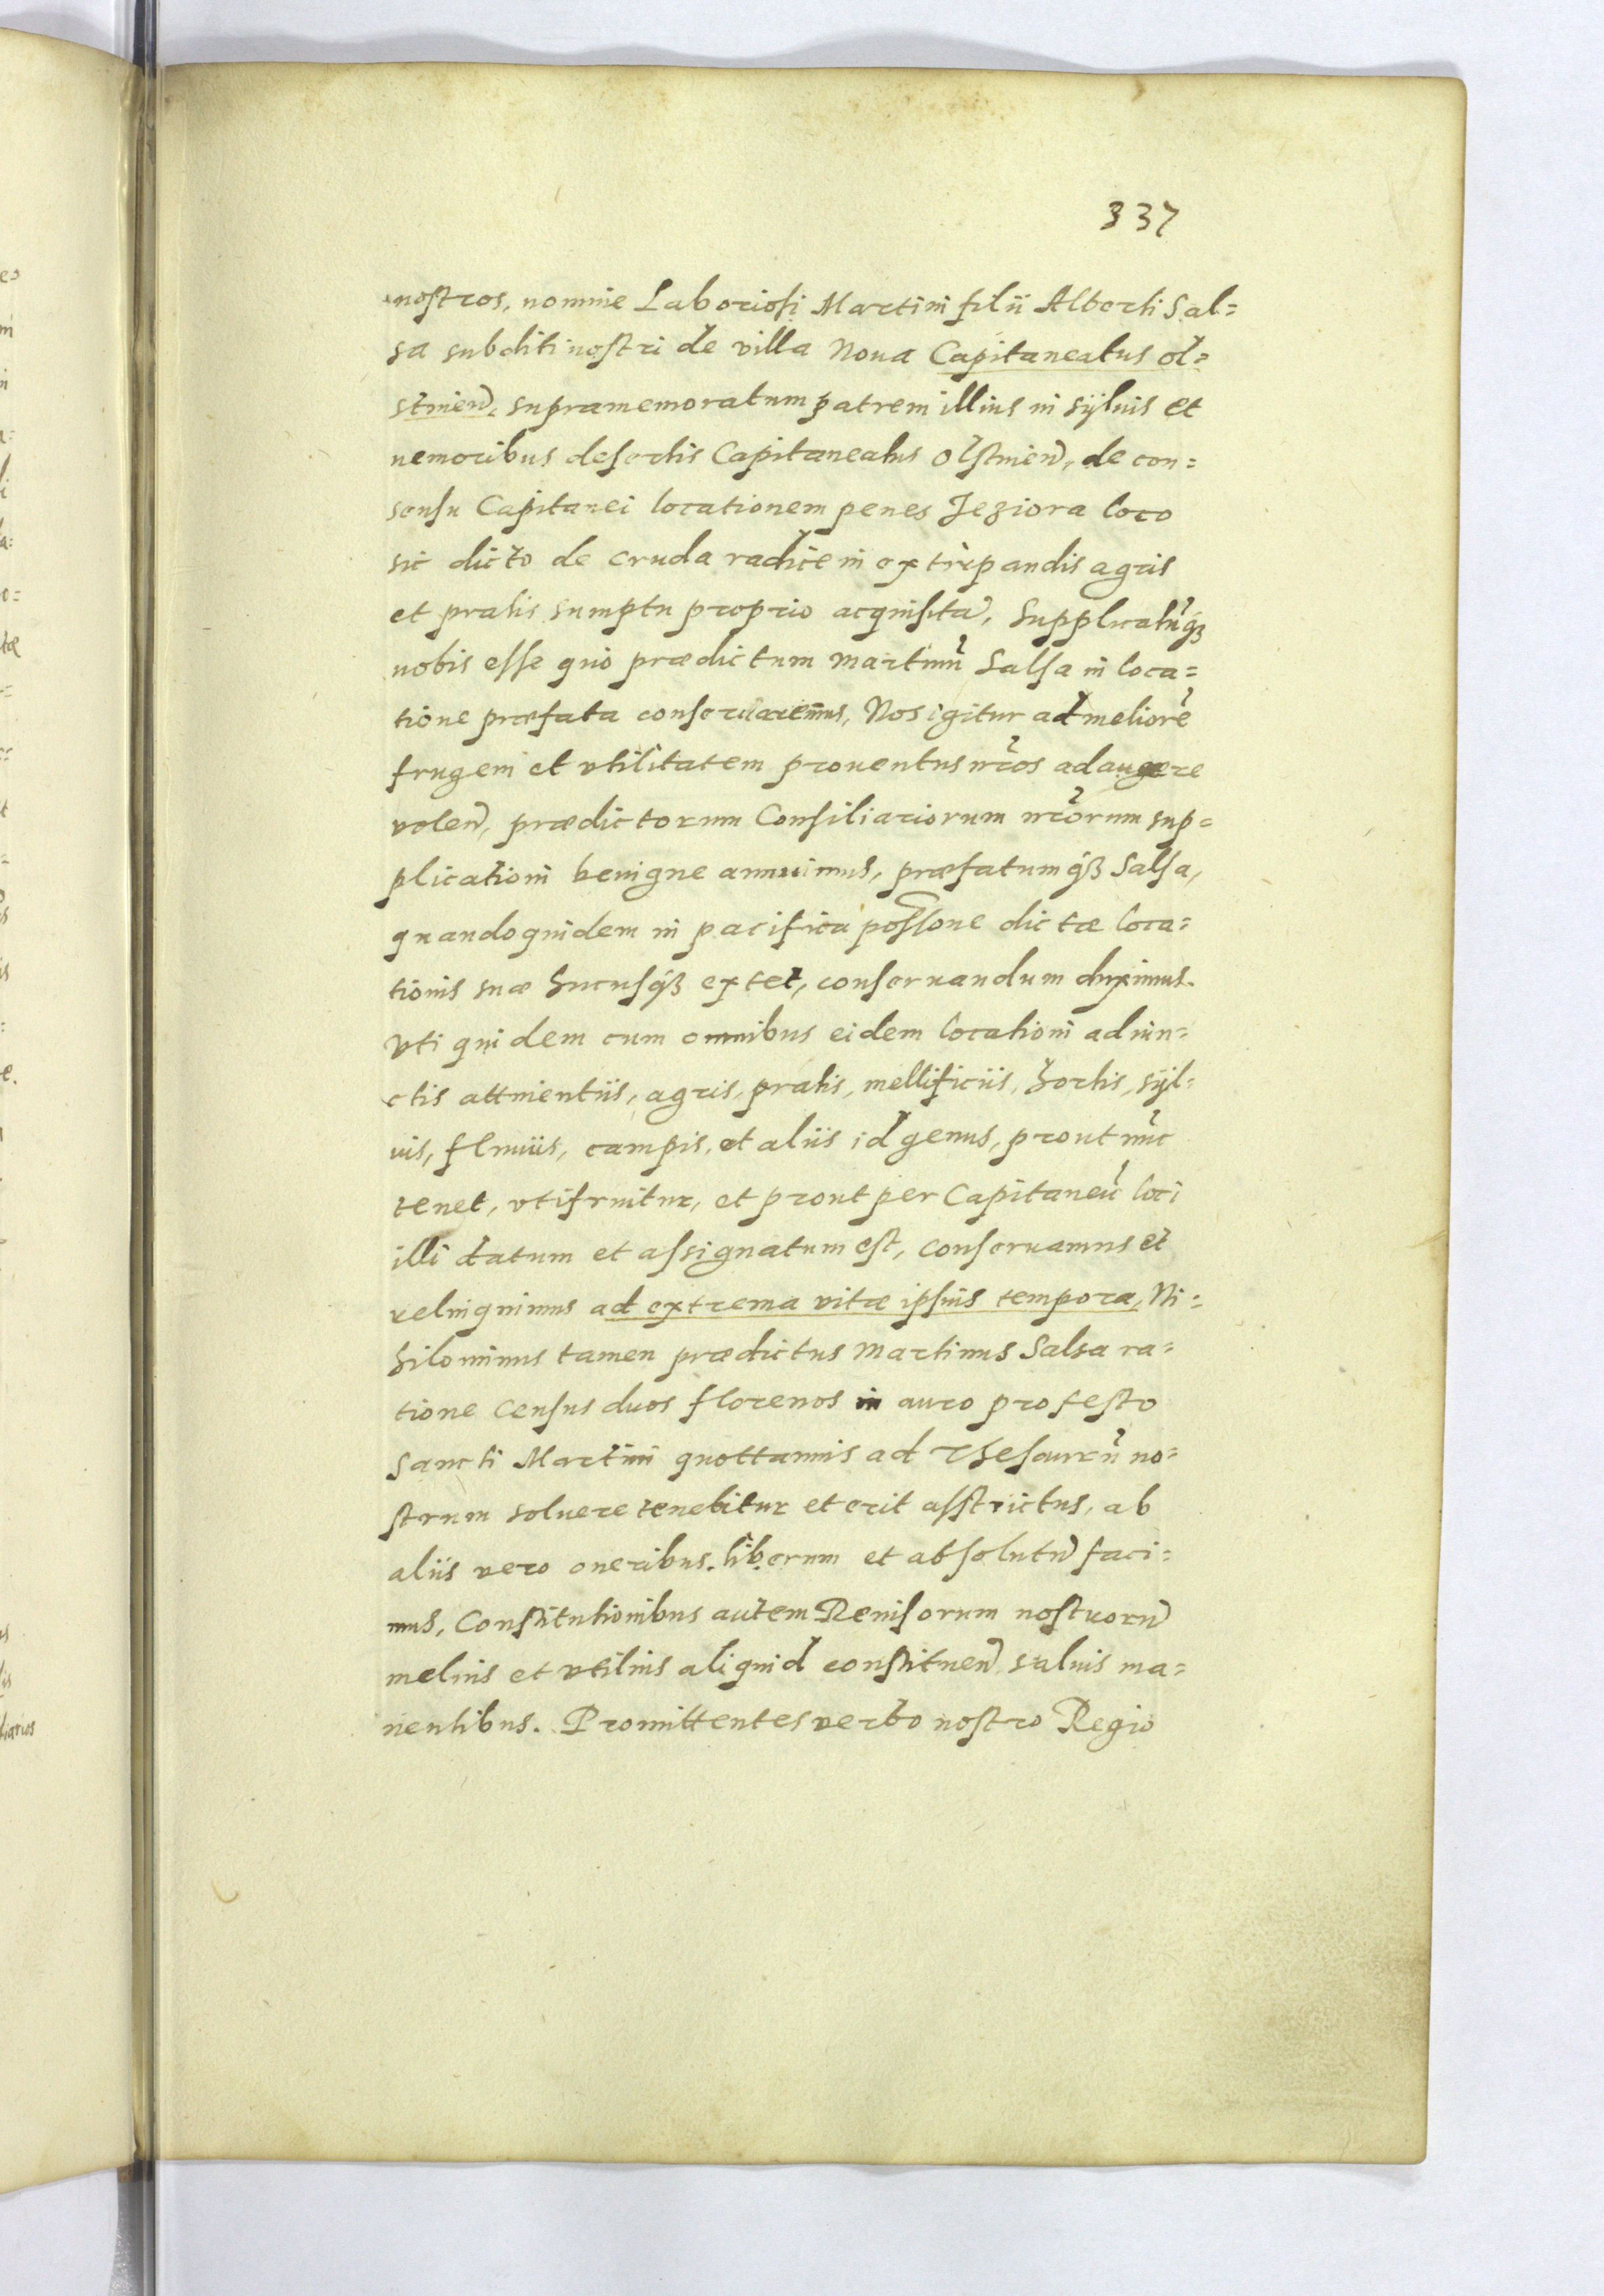 337
nostros, nomine Laboriosi Martini filii Alberti Sal=
sa subditi nostri de villa Noua Capitaneatus ol=
stinen̄, supramemoratum patrem illius in syluis et
nemoribus desertis Capitaneatus Olstinen̄, de con=
sensu Capitanei locationem penes Jeziora loco
sic dicto de cruda radice in extirpandis agris
et pratis sumptu proprio acquisitā, supplicatūq3
nobis esse quo prædictum martinū Salsa in loca=
tione præfata conseruaremus, Nos igitur ad meliorē
frugem et vtilitatem prouentus nr̄os adaugere
volen̄, prædictorum Consiliariorum nr̄orum sup=
plicationi benigne annuimus, præfatumq3 Salsa,
quandoquidem in pacifica poss̄one dictæ loca=
tionis suæ hucusq3 extet, conseruandum duximus.
Vti quidem cum omnibus eidem locationi adiun=
ctis attinentiis, agris, pratis, mellificiis, hortis, syl=
uis, fluuiis, campis, et aliis id genus, prout nūc
tenet, vtifruitur, et prout per Capitaneū loci
illi datum et assignatum est, conseruamus et
relinquimus ad extrema vitæ ipsius tempora, Ni=
hilominus tamen prædictus Martinus Salsa ra=
tione census duos florenos in auro pro festo
Sancti Martini quottannis ad Thesaurū no=
strum soluere tenebitur et erit asstrictus, ab
aliis vero oneribus liberum et absolutū faci=
mus, Constitutionibus autem Reuisorum nostrorū
melius et vtilius aliquid constituen̄ saluis ma=
nentibus. Promittentes verbo nostro Regio